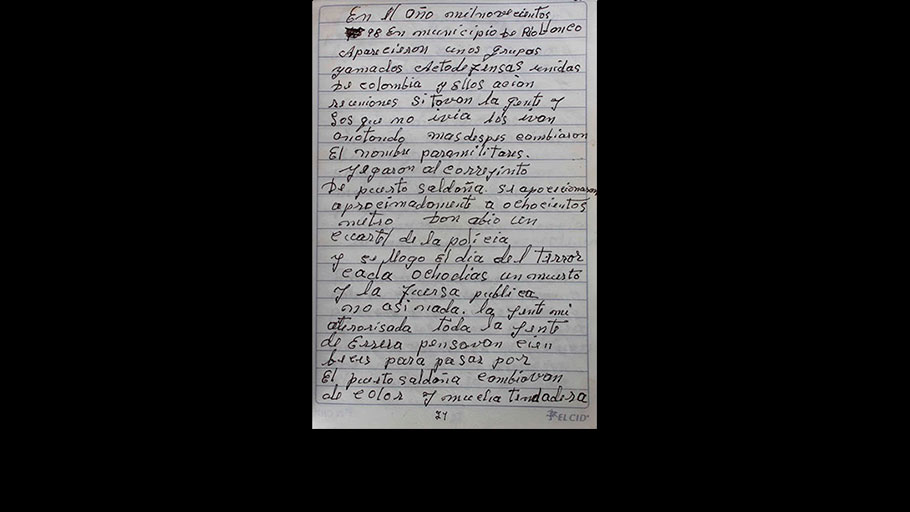 En El Año milnovecientos
98 En municipio De Rioblanco
Aparecieron unos grupos
yamados Autodefensas unidas
De colombia y Ellos acian
reuniones sitavan la gente y
Los que no ivia los ivan
anotando masdespes cambiaron
El nombre paramilitares.
yegaron al correjinto
De puerto saldaña se aposecionaron
aprocimadamente a ochocientos
metro don abio un
cuartel de la policia
y se llogo El dia del terror
cada ochodias un muerto
y la fuersa publica
no asi nada. la jente mi
aterorisada toda la jente
de Errera pensavan cien
beces para pasar por
El puerto saldaña cambiavan
de color y mucha tendadera
24
EL CID